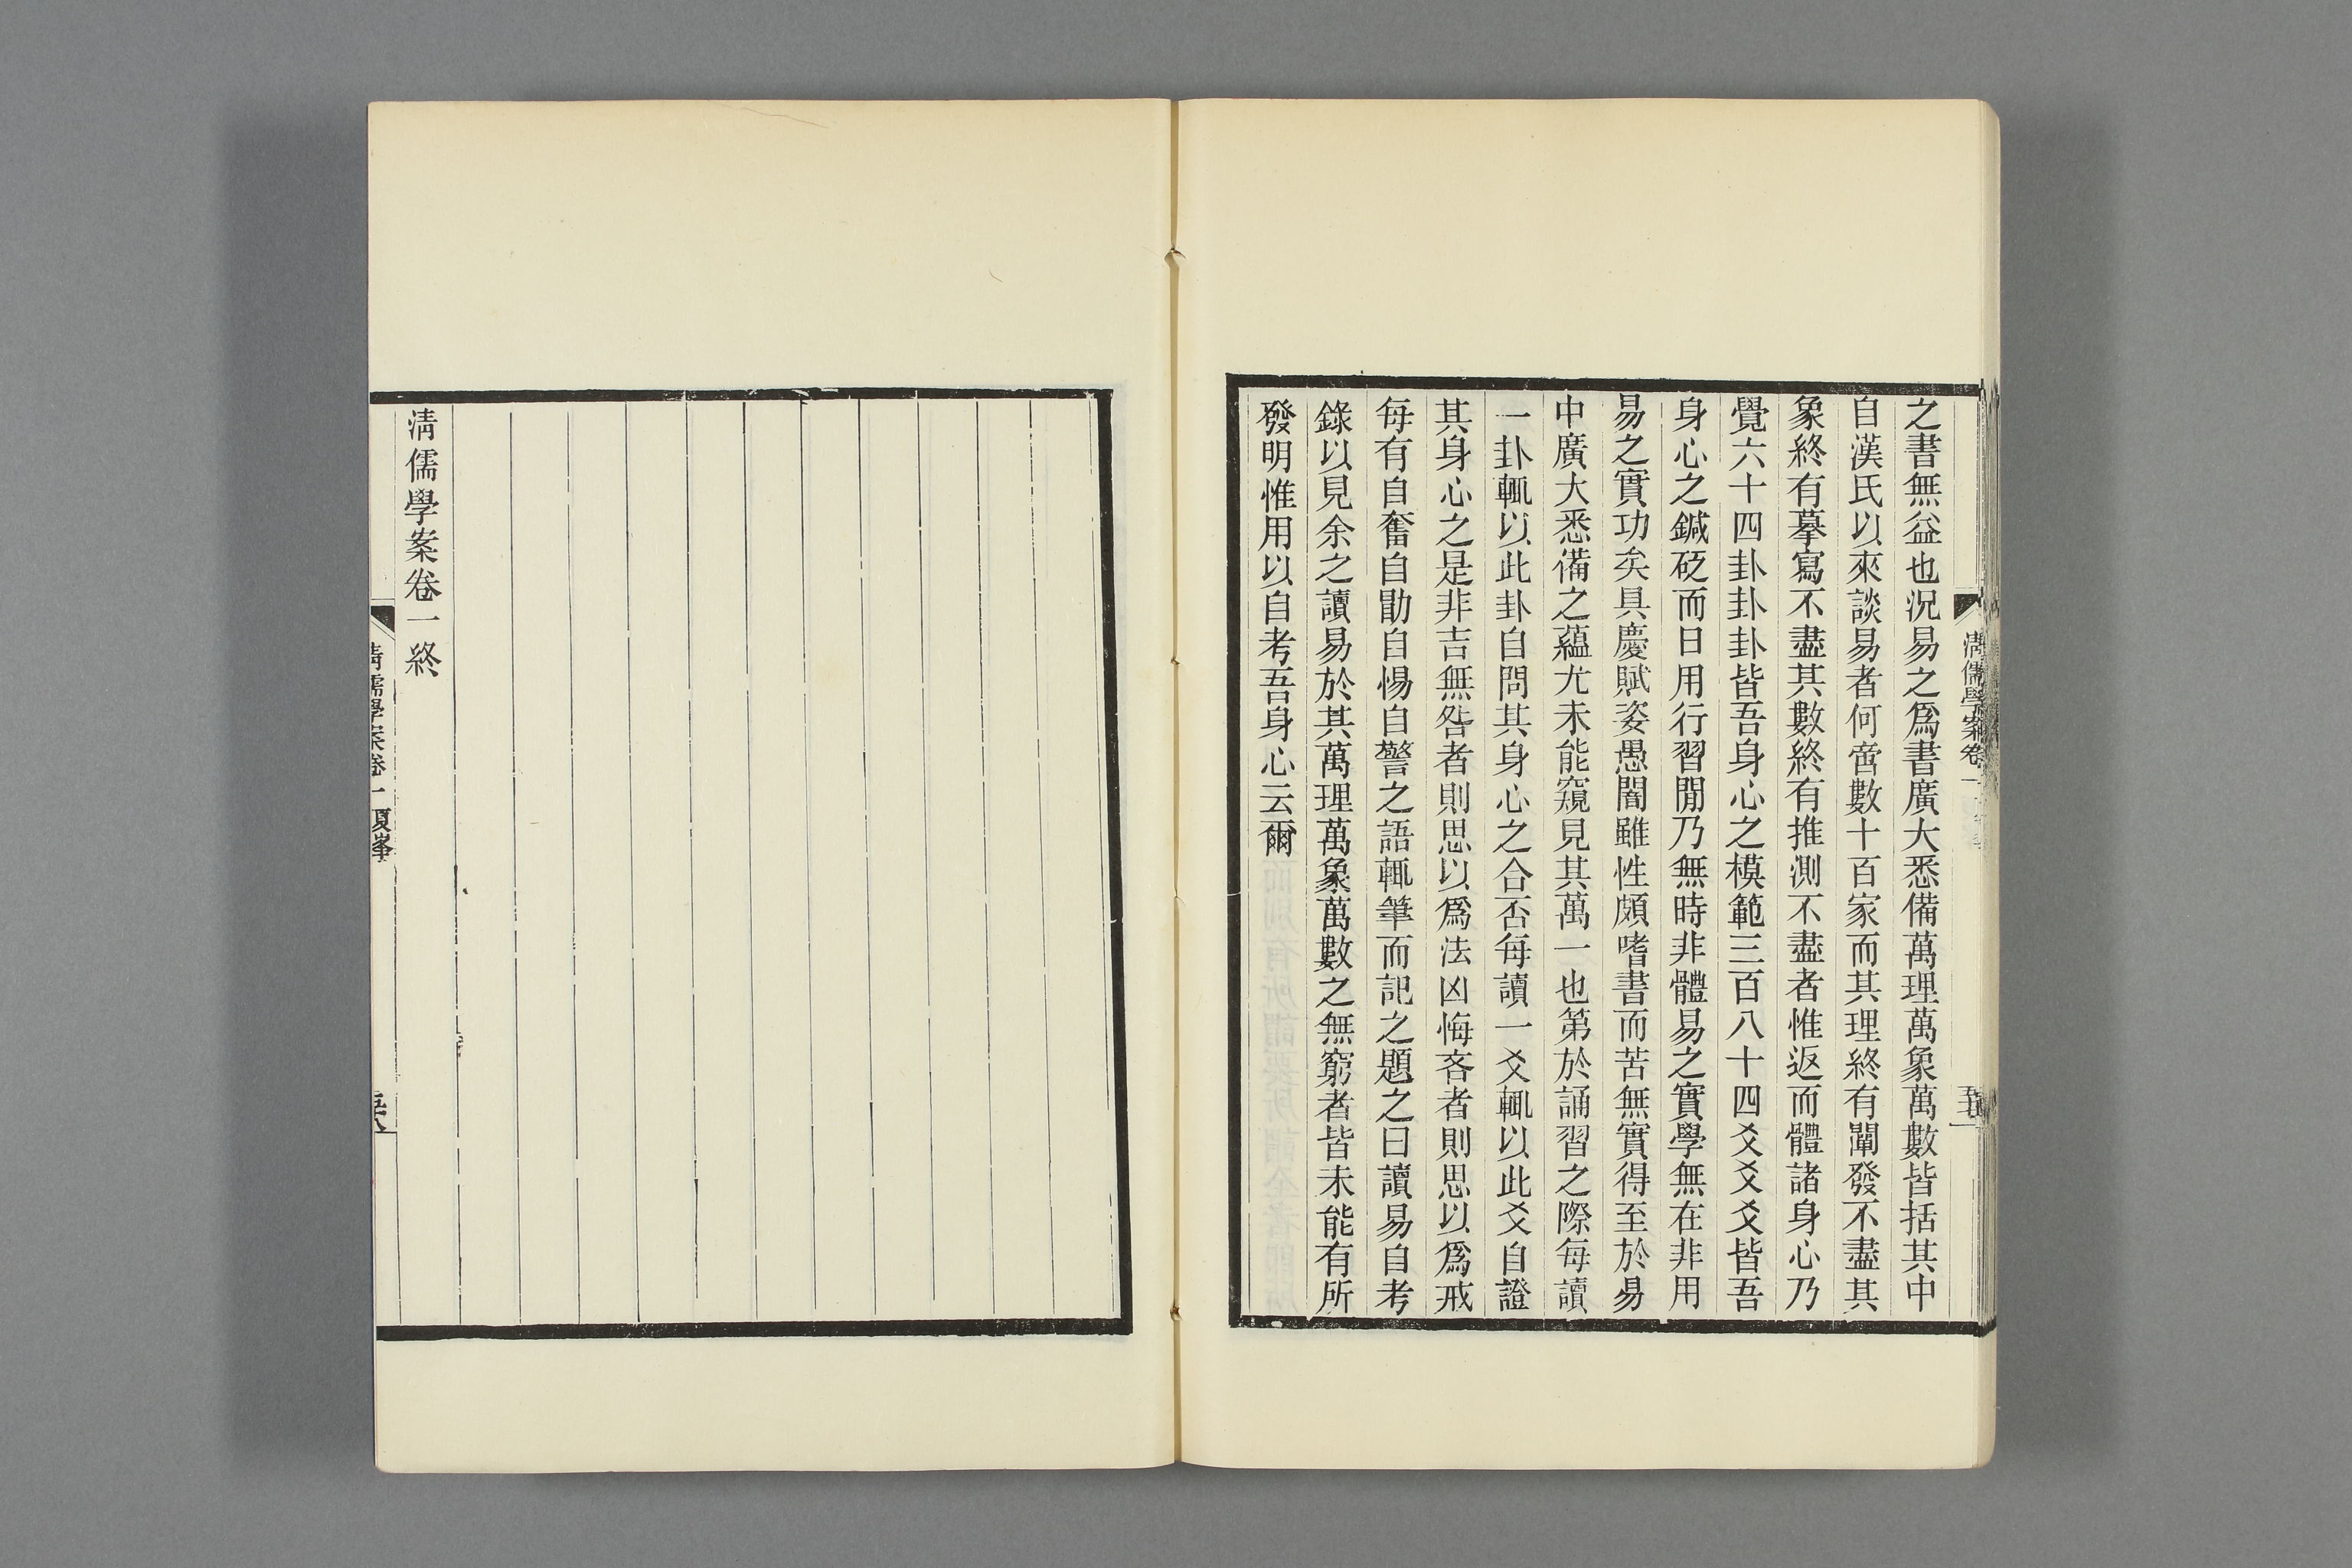 之書無益也況易之爲書廣大悉備萬理萬象萬數皆括其中
自漢氏以來談易者何啻數十百家而其理終有闡發不盡其
象終有摹寫不盡其數終有推測不盡者惟返而體諸身心乃
覺六十四卦卦卦皆吾身心之模範三百八十四爻爻爻皆吾
身心之鍼砭而日用行習閒乃無時非體易之實學無在非用
易之實功矣具慶賦姿愚闇雖性頗嗜書而苦無實得至於易
中廣大悉備之蘊尤未能窺見其萬一也第於誦習之際每讀
一卦輒以此卦自問其身心之合否每讀一爻輒以此爻自證
其身心之是非吉無咎者則思以爲法凶悔吝者則思以爲戒
每有自奮自勖自惕自警之語輒筆而記之題之曰讀易自考
錄以見余之讀易於其萬理萬象萬數之無窮者皆未能有所
發明惟用以自考吾身心云爾
清儒學案卷一
清儒學案卷一終
清儒學案卷一 夏峯